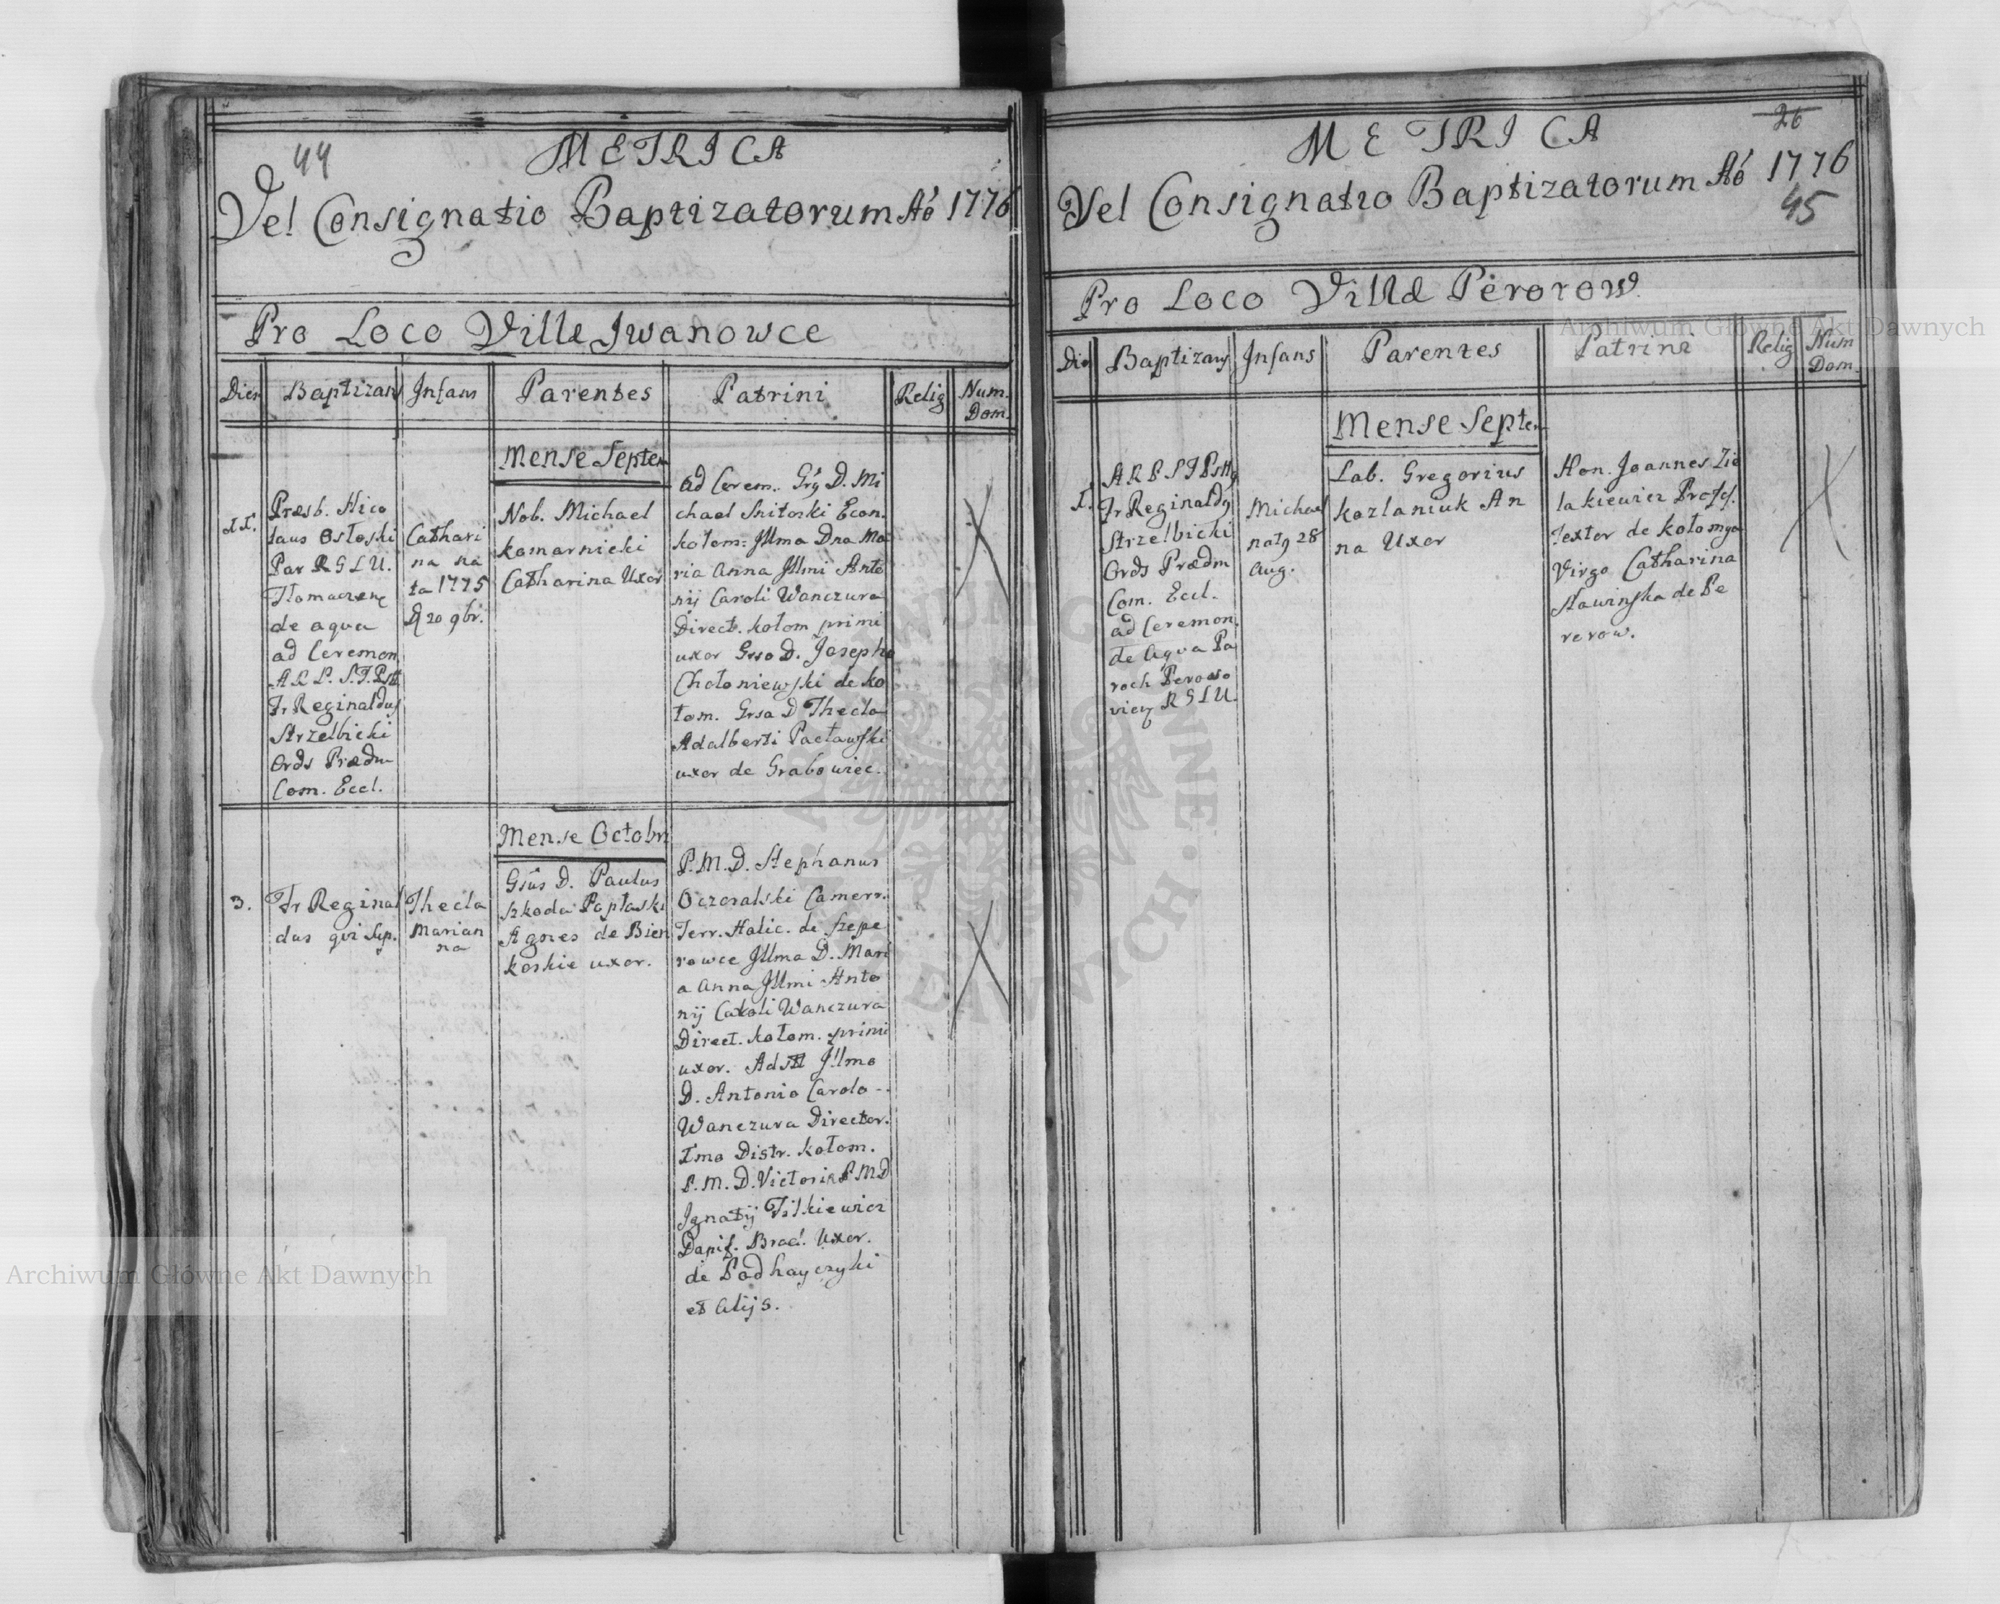 44
METRICA
Vel Consignatio Baptizatorum Aō 1776
Pro Loco Villæ Jwanowce
Dies Baptizans Infans Parentes Patrini Relig Num. Dom.
Mense Septem
Præsb. Nico
laus Osłoski
Par R G L U.
Tłomaczenę
de aqua
ad Ceremon.
A R P. S. T. Psttt
Fr Reginaldus
Strzelbicki
Ords Prædm
Com. Eccl.
Cathari
na na
ta 1775
D 20 9br.
Nob. Michael
Komarnicki
Catharina Uxor
ad Cerem. Gr͡g D. Mi
chael Snitoski Econ.
Kołom: Jllma Dna Ma
ria Anna Jllmi Anto
nij Caroli Wanczura
Direct. Kołom primi
uxor Grso D. Josepho
Chołoniewski de Ko
łom. Grsa D Thecla
Adalberti Pacławski
uxor de Grabowiec.
Mense Octobri
3.
Fr Reginal
dus qvi Sup.
Thecla
Marian
na
Gsus D. Paulus
Szkoda Popłaski
Agnes de Bien
koskie uxor.
P. M. D. Stephanus
Oczosalski Camerr.
Terr. Halic. de Szepe
rowce Jllma D. Mari
a Anna Jllmi Anto
nij Caroli Wanczura
Direct. Kołom. primi
uxor. Adstt Jllmo
D. Antonio Carolo --
Wanczura Director.
Imo Distr. Kołom.
P. M. D. Victoria P M D
Ignatij Filkiewicz
Dapif. Bracl. Uxor.
de Podhayczyki
et Alijs.
26
METRICA
Vel Consignatio Baptizatorum Aō 1776
45
Pro Loco Villæ Perorow
Die Baptizans Infans Parentes Patrini Relig Num Dom.
Mense Septem
1.
A R P S T Pstt9
Fr Reginald9
Strzelbicki
Ords Prædm
Com. Eccl.
ad Ceremon.
de Aqva Pa
roch Peroro
vien R G L U.
Michael
nat9 28
Aug.
Lab. Gregorius
Kozlaniuk An
na Uxor
Hon. Joannes Zie
lakiewicz Profs.
Textor de Kołomya
Virgo Catharina
Sławinska de Pe
rerow.
Archiwum Główne Akt Dawnych
Archiwum Główne Akt Dawnych